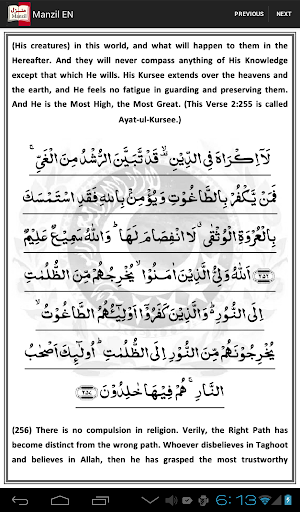 منزل
Manzil
Manzil EN
PREVIOUS NEXT
(His creatures) in this world, and what will happen to them in the
Hereafter. And they will never compass anything of His Knowledge
except that which He wills. His Kursee extends over the heavens and
the earth, and He feels no fatigue in guarding and preserving them.
And He is the Most High, the Most Great. (This Verse 2:255 is called
Ayat-ul-Kursee.)
لَآ اِكْرَاهَ فِی الدِّيْنِ ۙ قَدْ تَّبَيَّنَ الرُّشْدُ مِنَ الْغَیِّ ۚ
فَمَنْ يَّكْفُرْ بِالطَّاغُوْتِ وَيُؤْمِنْۢ بِاللّٰهِ فَقَدِ اسْتَمْسَكَ
بِالْعُرْوَةِ الْوُثْقٰی ۗ لَا انْفِصَامَ لَهَا ؕ وَاللّٰهُ سَمِيْعٌ عَلِيْمٌ
﴿۲۵۶﴾ اَللّٰهُ وَلِیُّ الَّذِيْنَ اٰمَنُوْا ۙ يُخْرِجُهُمْ مِّنَ الظُّلُمٰتِ
اِلَی النُّوْرِ ؕ وَالَّذِيْنَ كَفَرُوْٓا اَوْلِيٰٓئُهُمُ الطَّاغُوْتُ ۙ
يُخْرِجُوْنَهُمْ مِّنَ النُّوْرِ اِلَی الظُّلُمٰتِ ؕ اُولٰٓئِكَ اَصْحٰبُ
النَّارِ ۚ هُمْ فِيْهَا خٰلِدُوْنَ ﴿۲۵۷﴾
(256) There is no compulsion in religion. Verily, the Right Path has
become distinct from the wrong path. Whoever disbelieves in Taghoot
and believes in Allah, then he has grasped the most trustworthy
6:13